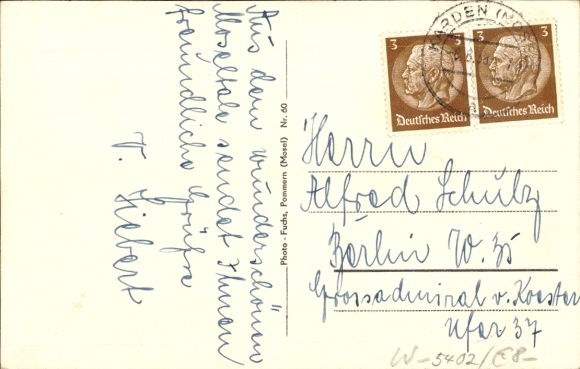 Aus dem wunderschönen
Moseltale sendet Ihnen
freundliche Grüße
V. Siebert
Photo - Fuchs, Pommern (Mosel) Nr. 60
KARDEN (MOSEL)
3
Deutsches Reich
3
Deutsches Reich
Herrn
Alfred Schulz
Berlin W. 35
Grossadmiral v. Koester
Ufer 37
W-5402/E8-